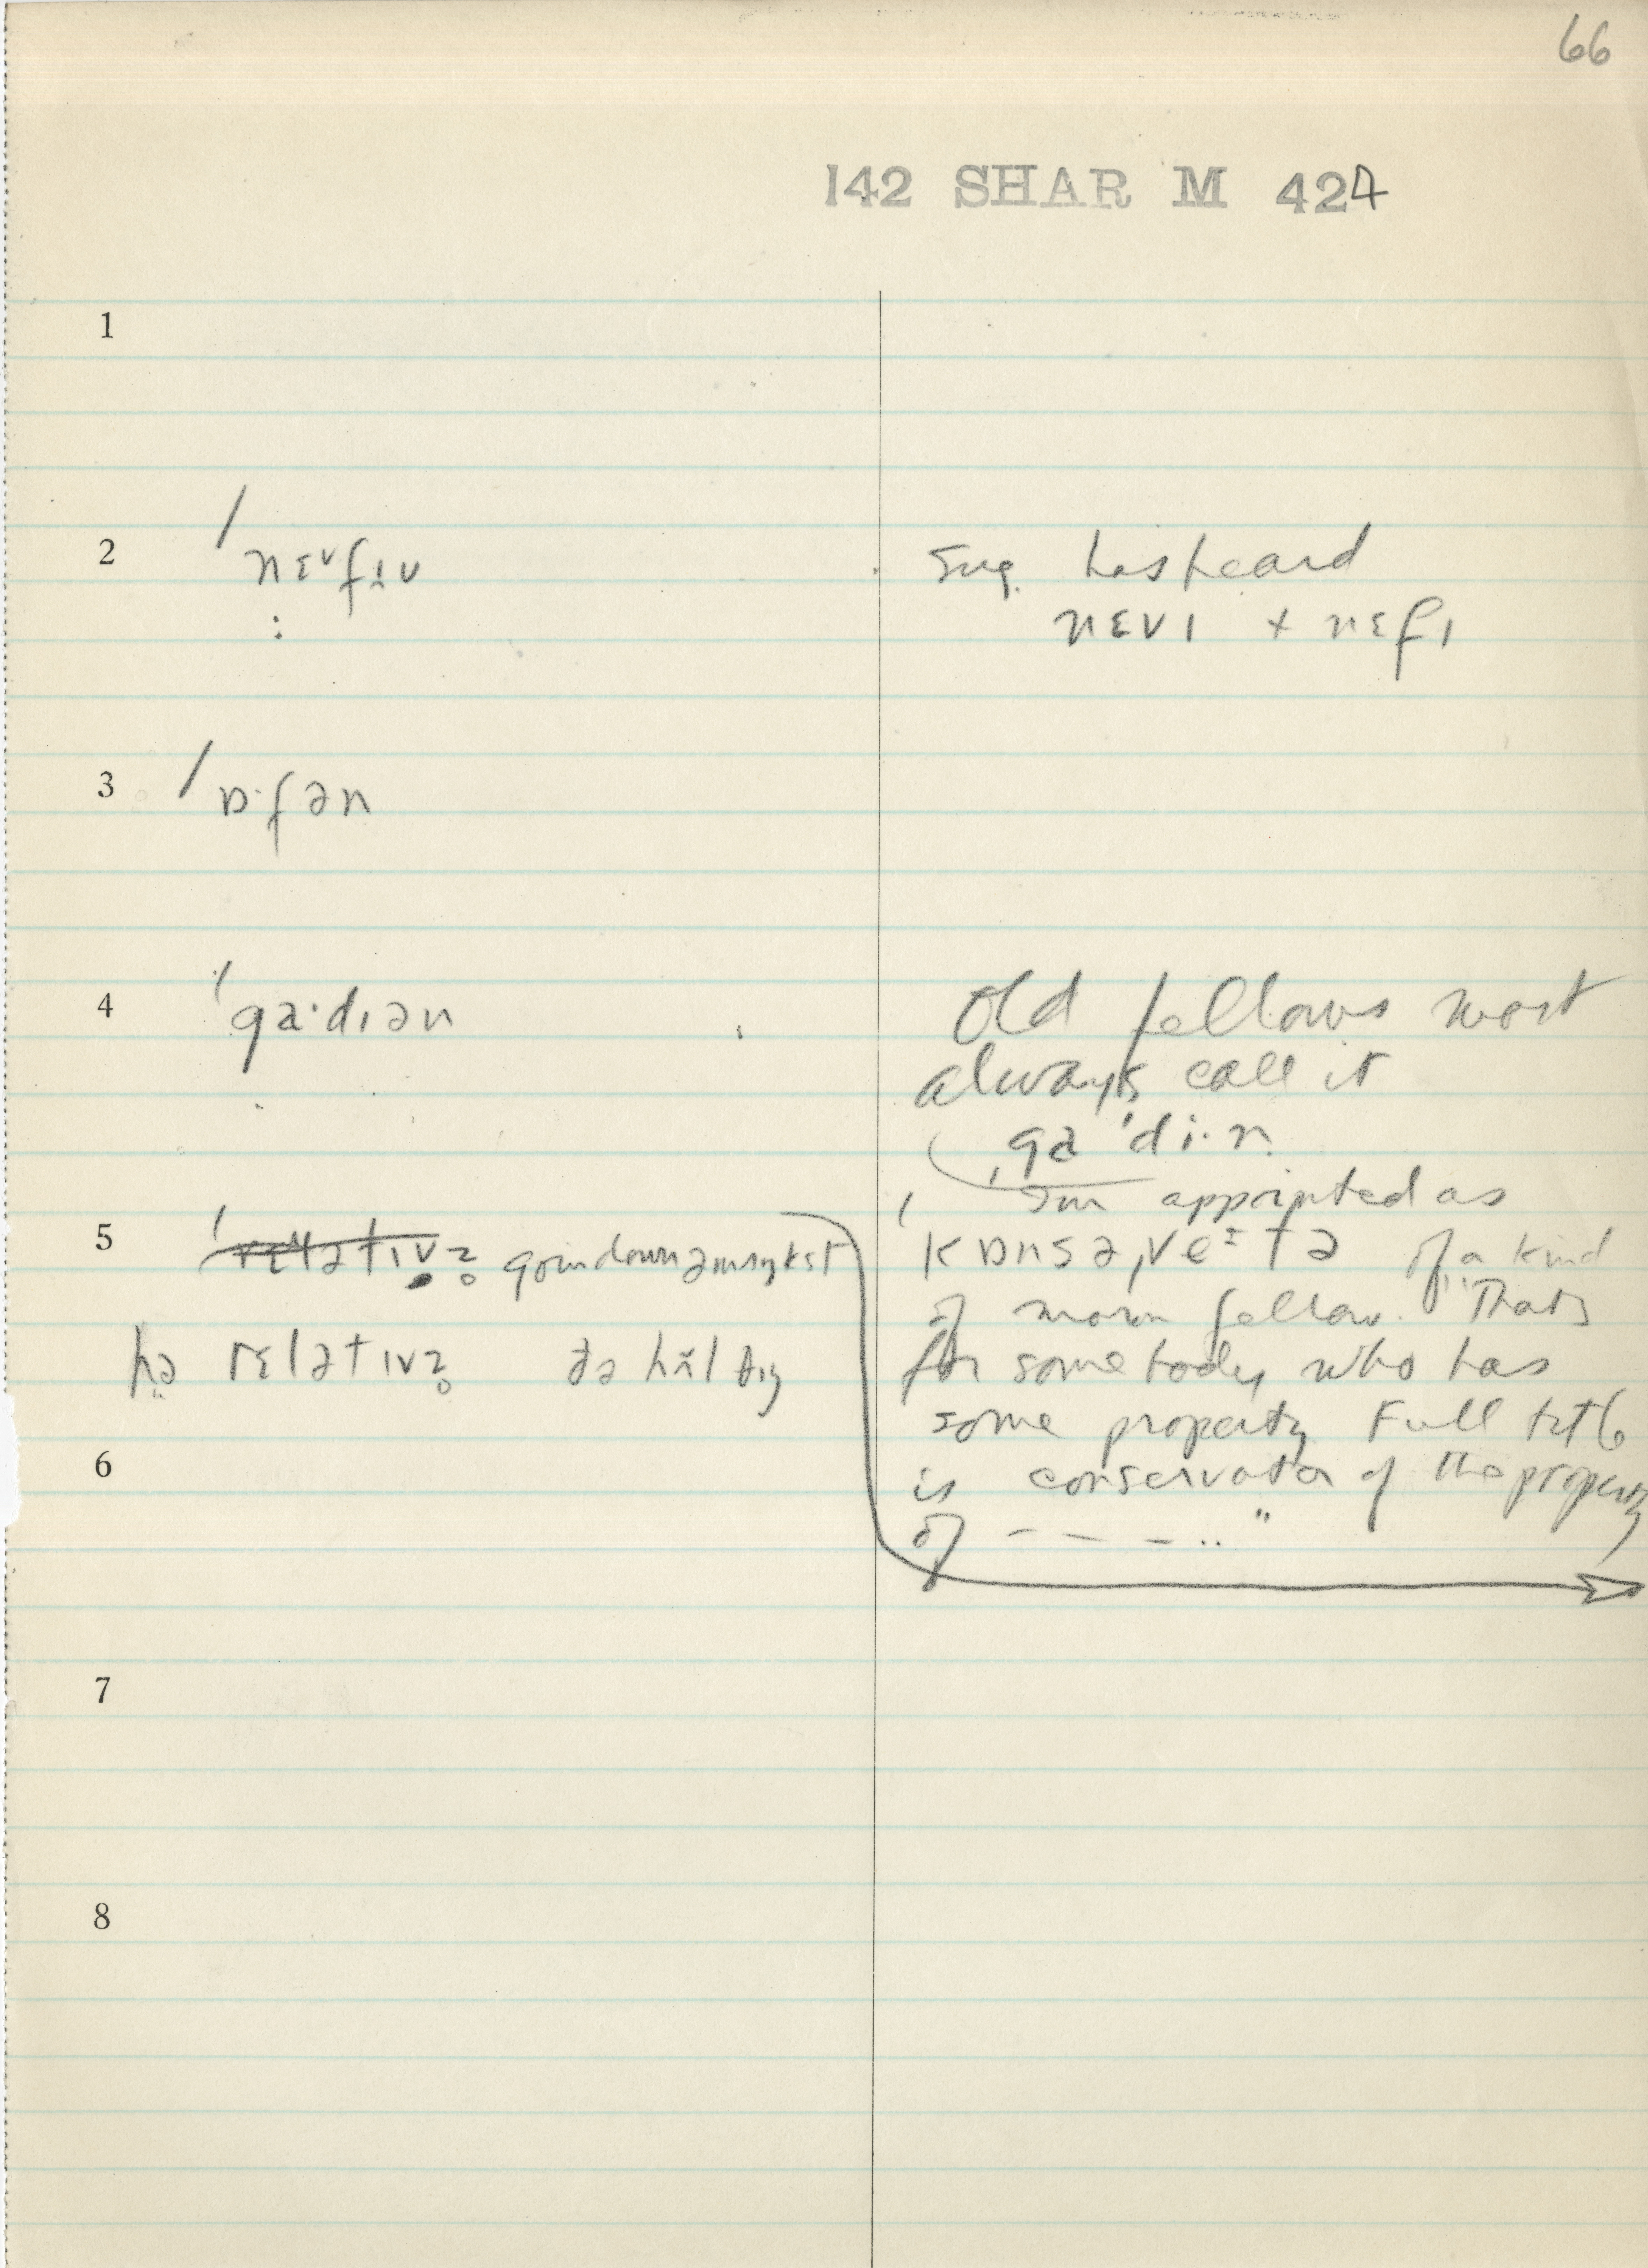 66
142 SHAR M 424
1
2 / nɛᵛfɪʊ
Sug. has heard
nɛvɪ + nɛfɪ
3 / ɒ·fən
4 'ga·dɪən
Old fellows most
always call it
ga'di·n
Im appointed as
kɒnsəˌve tə of a kind
of moron fellow. "That's
for somebody who has
some property Full title
is conservator of the property
of – – – .. "
5 goin down
hə rɛlətɪvz ðə hŏl
6
7
8